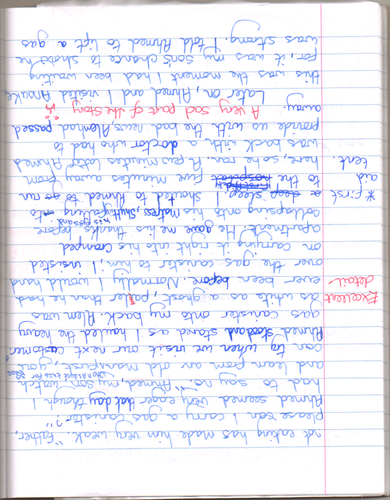 not eating has made him very weak. "Father,
please can I carry a gas canister?"
Ahmed seemed very eager that day though I
had to say no. "No, Ahmed, my son, watch
and learn from an old man first, you
can try when we visit our next customer"
Ahmed stood and stared as I hauled the heavy
gas canister onto my back. Alem was
as white as a ghost, paler than he had
Excellent detail
ever been before. Normally I would hand
over the gas canister to him; I insisted
on carrying it right into his cramped
apartment. He gave me his thanks before
collapsing onto his
I should to Ahmed to run
* First
to the hospital five minutes away from
and
here, so he ran. A few minutes later Ahmed
tent.
was back with a doctor who had to
provide us with the bad news, Alemhad passed
away. A very sad part of the story
Later on, Ahmed and I visited Ansake
this was the moment I had been waiting
for, it was my son's chance to show he
was strong. I told Ahmed to lift a gas